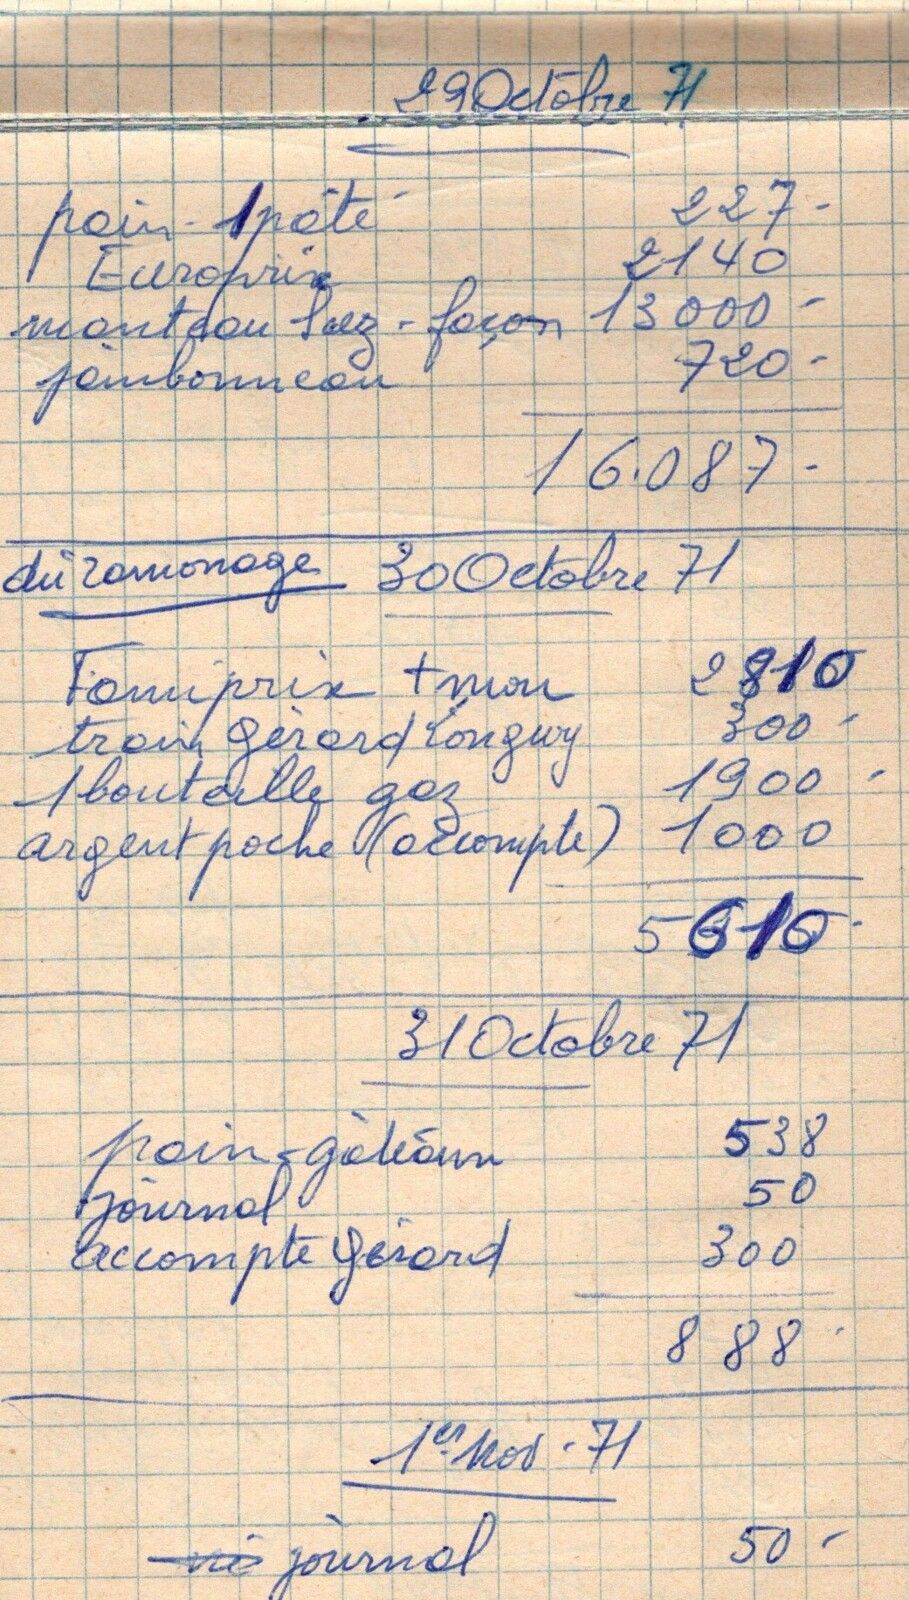 29 Octobre 71
pain - 1 pâté 227 -
Europrix 2140
manteau - façon 13000 -
jambonneau 720 -
16.087 -
dû ramonage 30 Octobre 71
Famiprix + mou 2810
train Gérard Longwy 300 -
1 bouteille gaz 1900 -
argent poche (accompte) 1000
5610 -
31 Octobre 71
pain - gâteaux 538
journal 50
accompte Gérard 300
888 -
1er Nov - 71
journal 50 -